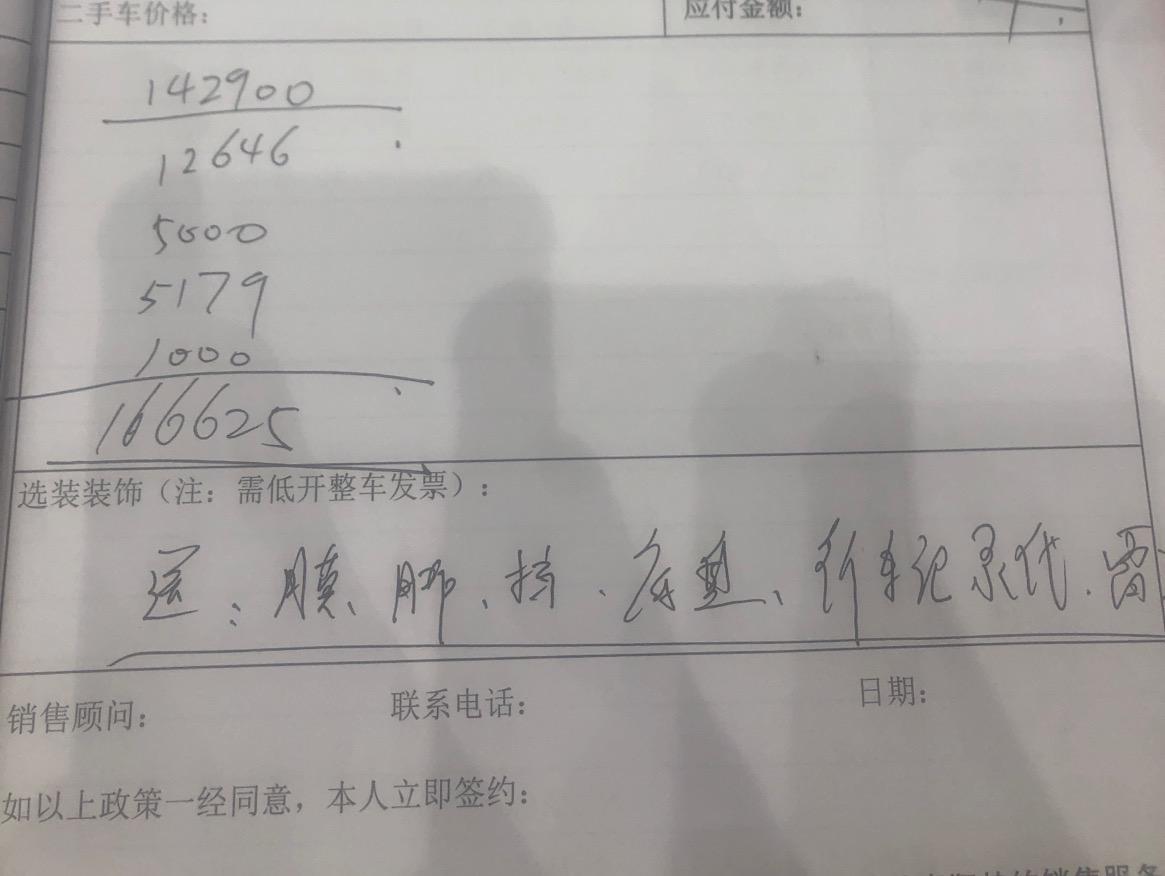 二手车价格： 应付金额：
142900
12646
5000
5179
1000
166625
选装装饰（注：需低开整车发票）：
送：膜、脚、挡、座垫、行车记录代、雷
销售顾问： 联系电话： 日期：
如以上政策一经同意，本人立即签约：
的销售服务